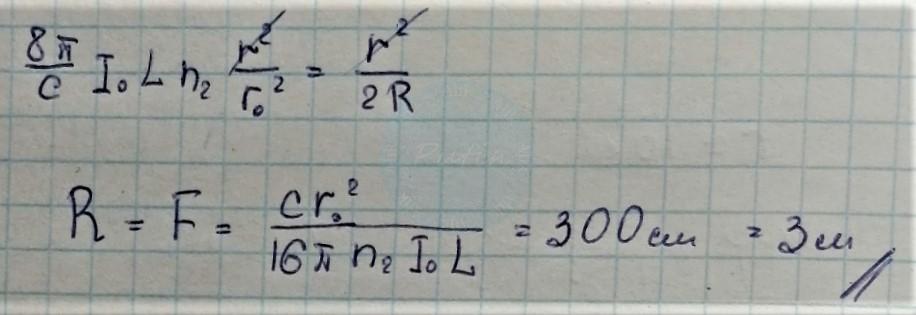 8π/c I₀ L n₂ r²/r₀² = r²/2R
R = F = cr₀²/16π n₂ I₀ L = 300 см = 3 м